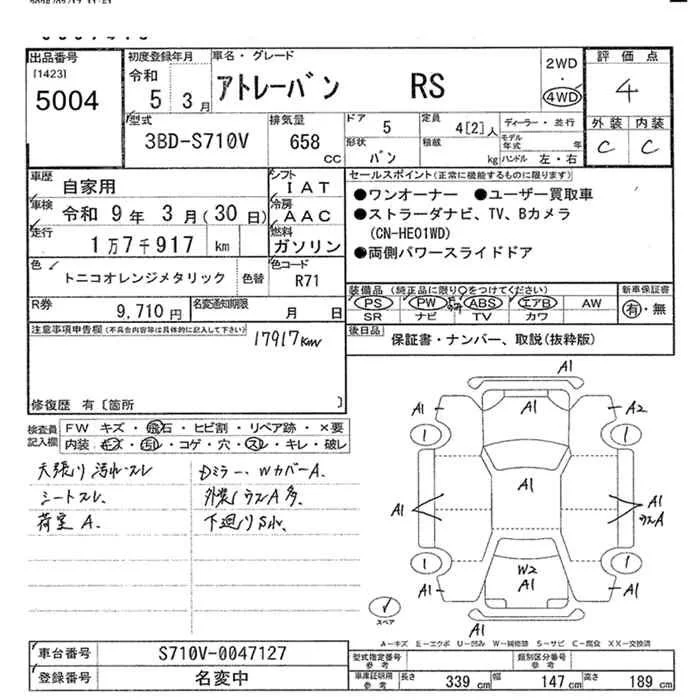 出品番号
[1423]
5004
初度登録年月
令和
5 3月
車名・グレード
アトレーバン RS
2WD
・
4WD
評価点
4
外装 内装
C C
型式
3BD-S710V
排気量
658
CC
ドア
5
形状
バン
定員
4[2]人
積載
kg
ディーラー・並行
モデル
年式 年
ハンドル 左・右
車歴
自家用
シフト
IAT
車検
令和 9年 3月(30日)
冷房
AAC
走行
1万7千917 km
燃料
ガソリン
セールスポイント(正常に機能するものに限ります)
●ワンオーナー ●ユーザー買取車
●ストラーダナビ、TV、Bカメラ
(CN-HE01WD)
●両側パワースライドドア
色
トニコオレンジメタリック
色替
色コード
R71
装備品(純正品に限り○をつけてください)
PS PW ABS エアB AW
SR ナビ TV カワ
新車保証書
有・無
R券
9,710円
名変通知期限
月 日
後日品
保証書・ナンバー、取説(抜粋版)
注意事項申告欄(不具合内容等は具体的に記入して下さい)
17917km
修復歴 有〔箇所 〕
検査員
記入欄
FW キズ・飛石・ヒビ割・リペア跡・×要
内装・キズ・汚れ・コゲ・穴・スレ・キレ・破レ
天張り汚れ・スレ
シートスレ、
荷室 A.
Dミラー、WカバーA.
外装ウスA多
下廻りサビ
A1
A1
A1
A2
1
1
A1
A1
A1
ウスA
1
1
W2
A1
A1
A1
A1
スペア
A-キズ E-エクボ U-凹み W-補修跡 S-サビ C-腐食 XX-交換済
車台番号
S710V-0047127
登録番号
名変中
型式指定番号
参考
類別区分番号
参考
車庫証明用
参考
長さ
339 cm
幅
147 cm
高さ
189 cm